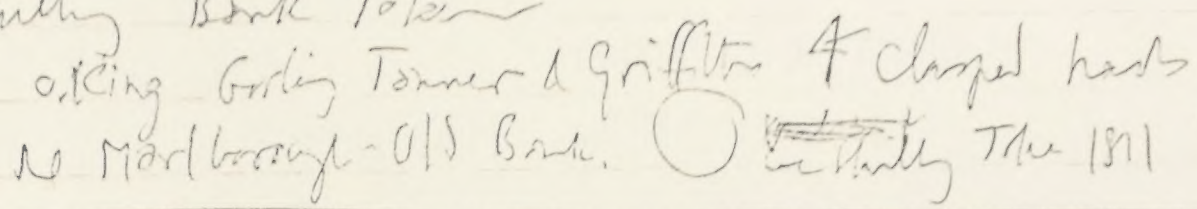 Bank Token
King Gosling Tanner & Griffiths 4 clasped hands
Marlborough - Old Bank. Token 1811